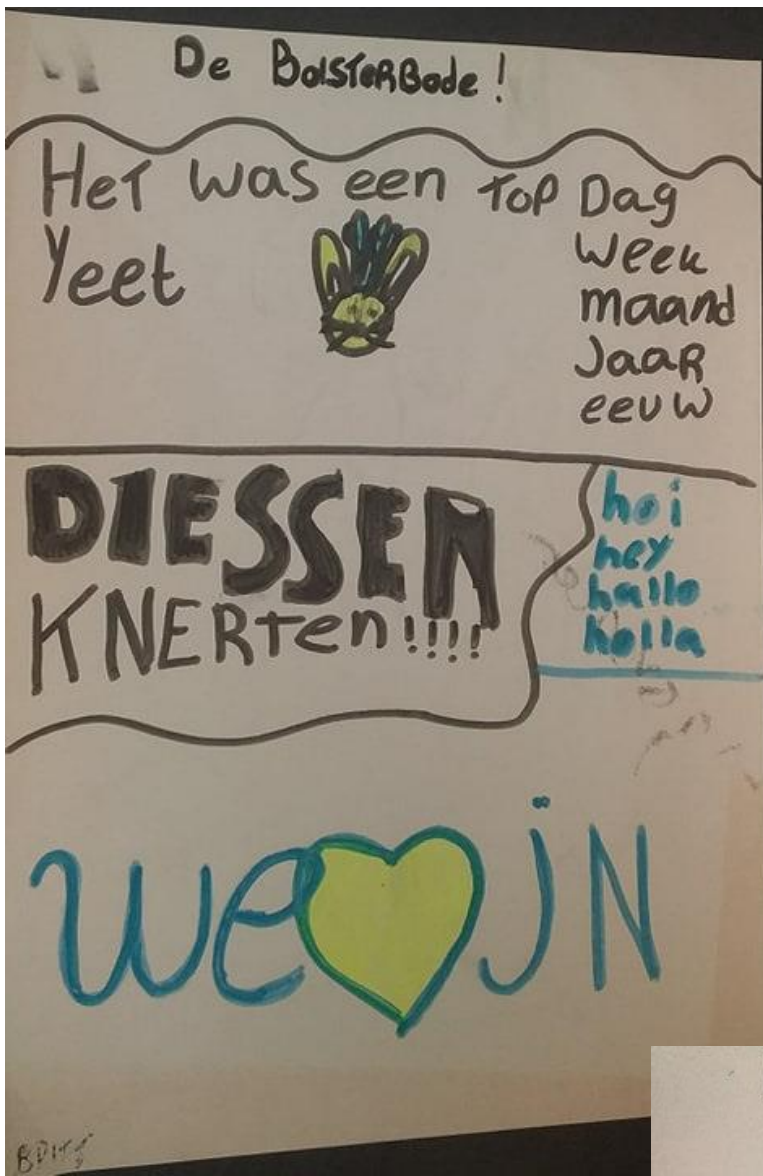 De BolsterBode!
Het was een top Dag
Yeet
week
maand
Jaar
eeuw
DIESSEN
KNERTen!!!!
hoi
hey
hallo
holla
we jN